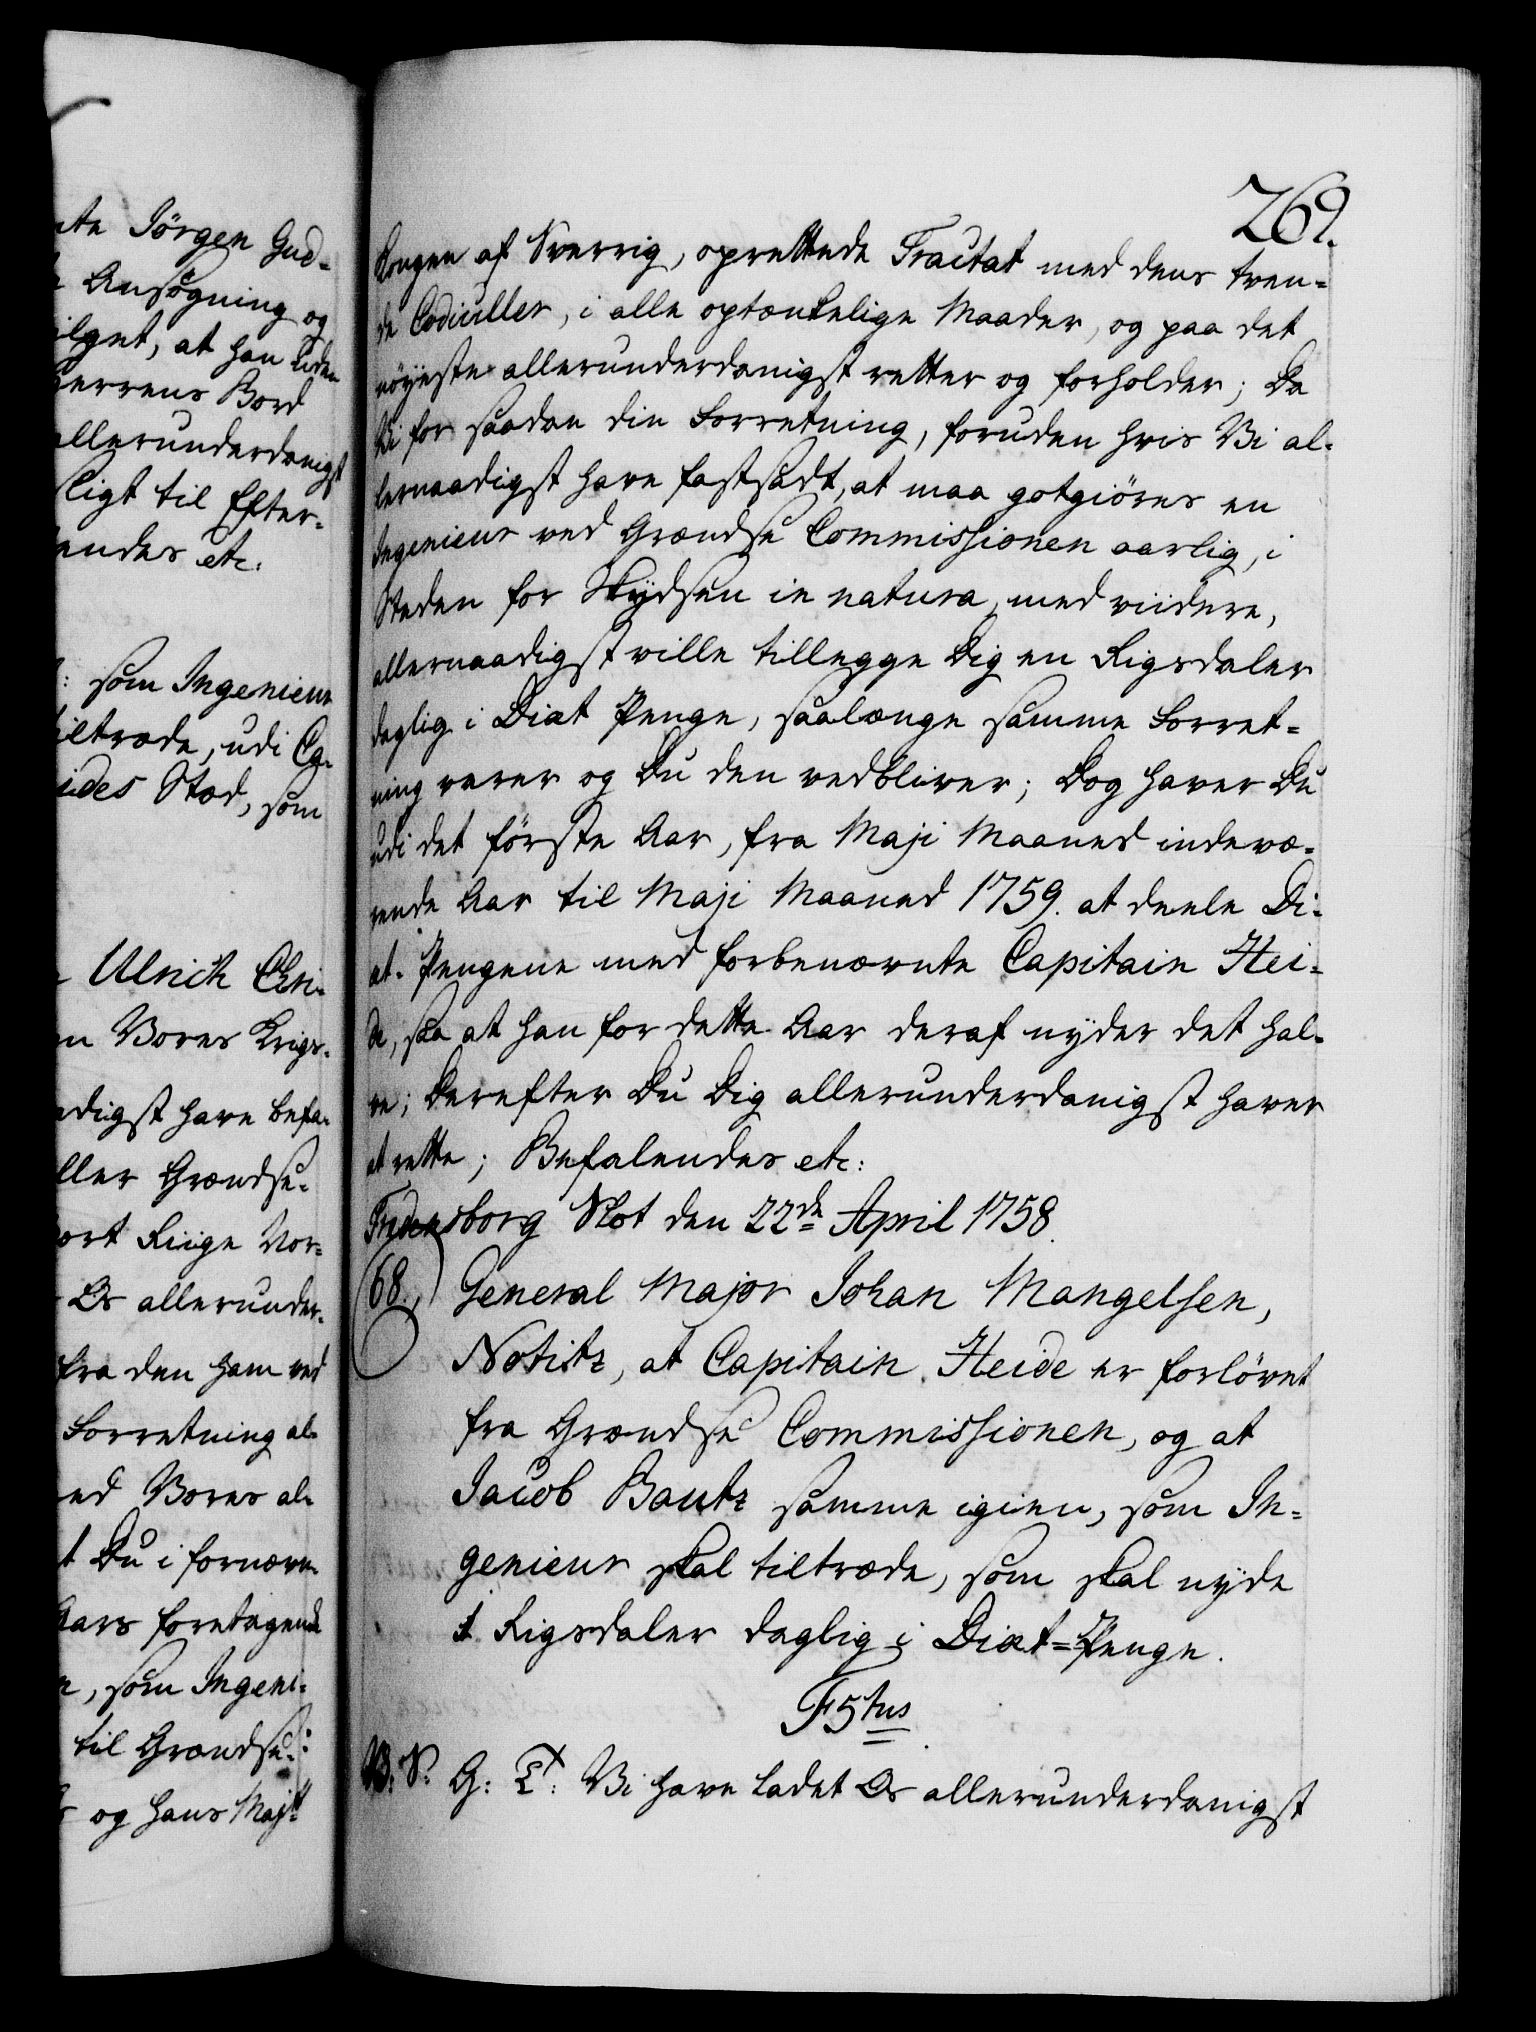 nte Jörgen Gud-
Ansögning og
ilget, at han uden
Herrens Bord
allerunderdanigst
ligt til Efter-
endes etc:
: som Ingenieur
iltræde, udi Ca-
ides Stæd, som
Ulrich Chri-
Vores Krigs-
adigst have befa-
ller Grændse-
ort Riige Nor-
Os allerunder-
fra den ham ved
Forretning al-
ed Vores al-
t Du i fornævn-
Aars foretagende
, som Ingeni-
til Grændse-
og Hans Majts
269.
Kongen af Sverrig, oprettede Tractat med dens tven-
de Codiciller, i alle optænkelige Maader, og paa det
nöyeste allerunderdanigst retter og forholder; Da
Vi for saadan din Forretning, foruden hvis Vi al-
lernaadigst have fastsadt, at maa gotgiöres en
Ingenieur ved Grændse Commissionen aarlig, i
Steden for Skydsen in natura, med viidere,
allernaadigst ville tillegge Dig en Rigsdaler
daglig i Diæt Penge, saalænge samme Forret-
ning varer og Du den vedbliver; Dog haver Du
udi det förste Aar, fra Maji Maaned indevæ-
rende Aar til Maji Maaned 1759. at deele Di-
æt-Pengene med forbenævnte Capitain Hei-
de, saa at han for dette Aar deraf nyder det hal-
ve; Derefter Du Dig allerunderdanigst haver
at rette; Befalendes etc:
Fredensborg Slot den 22de April 1758.
68.) General Major Johan Mangelsen,
Notitz, at Capitain Heide er forlövet
fra Grændse Commissionen, og at
Jacob Bautz samme igien, som In-
genieur skal tiltræde, som skal nyde
1 Rigsdaler daglig i Diæt-Penge.
F5tus
V: S: G: T: Vi have ladet Os allerunderdanigst